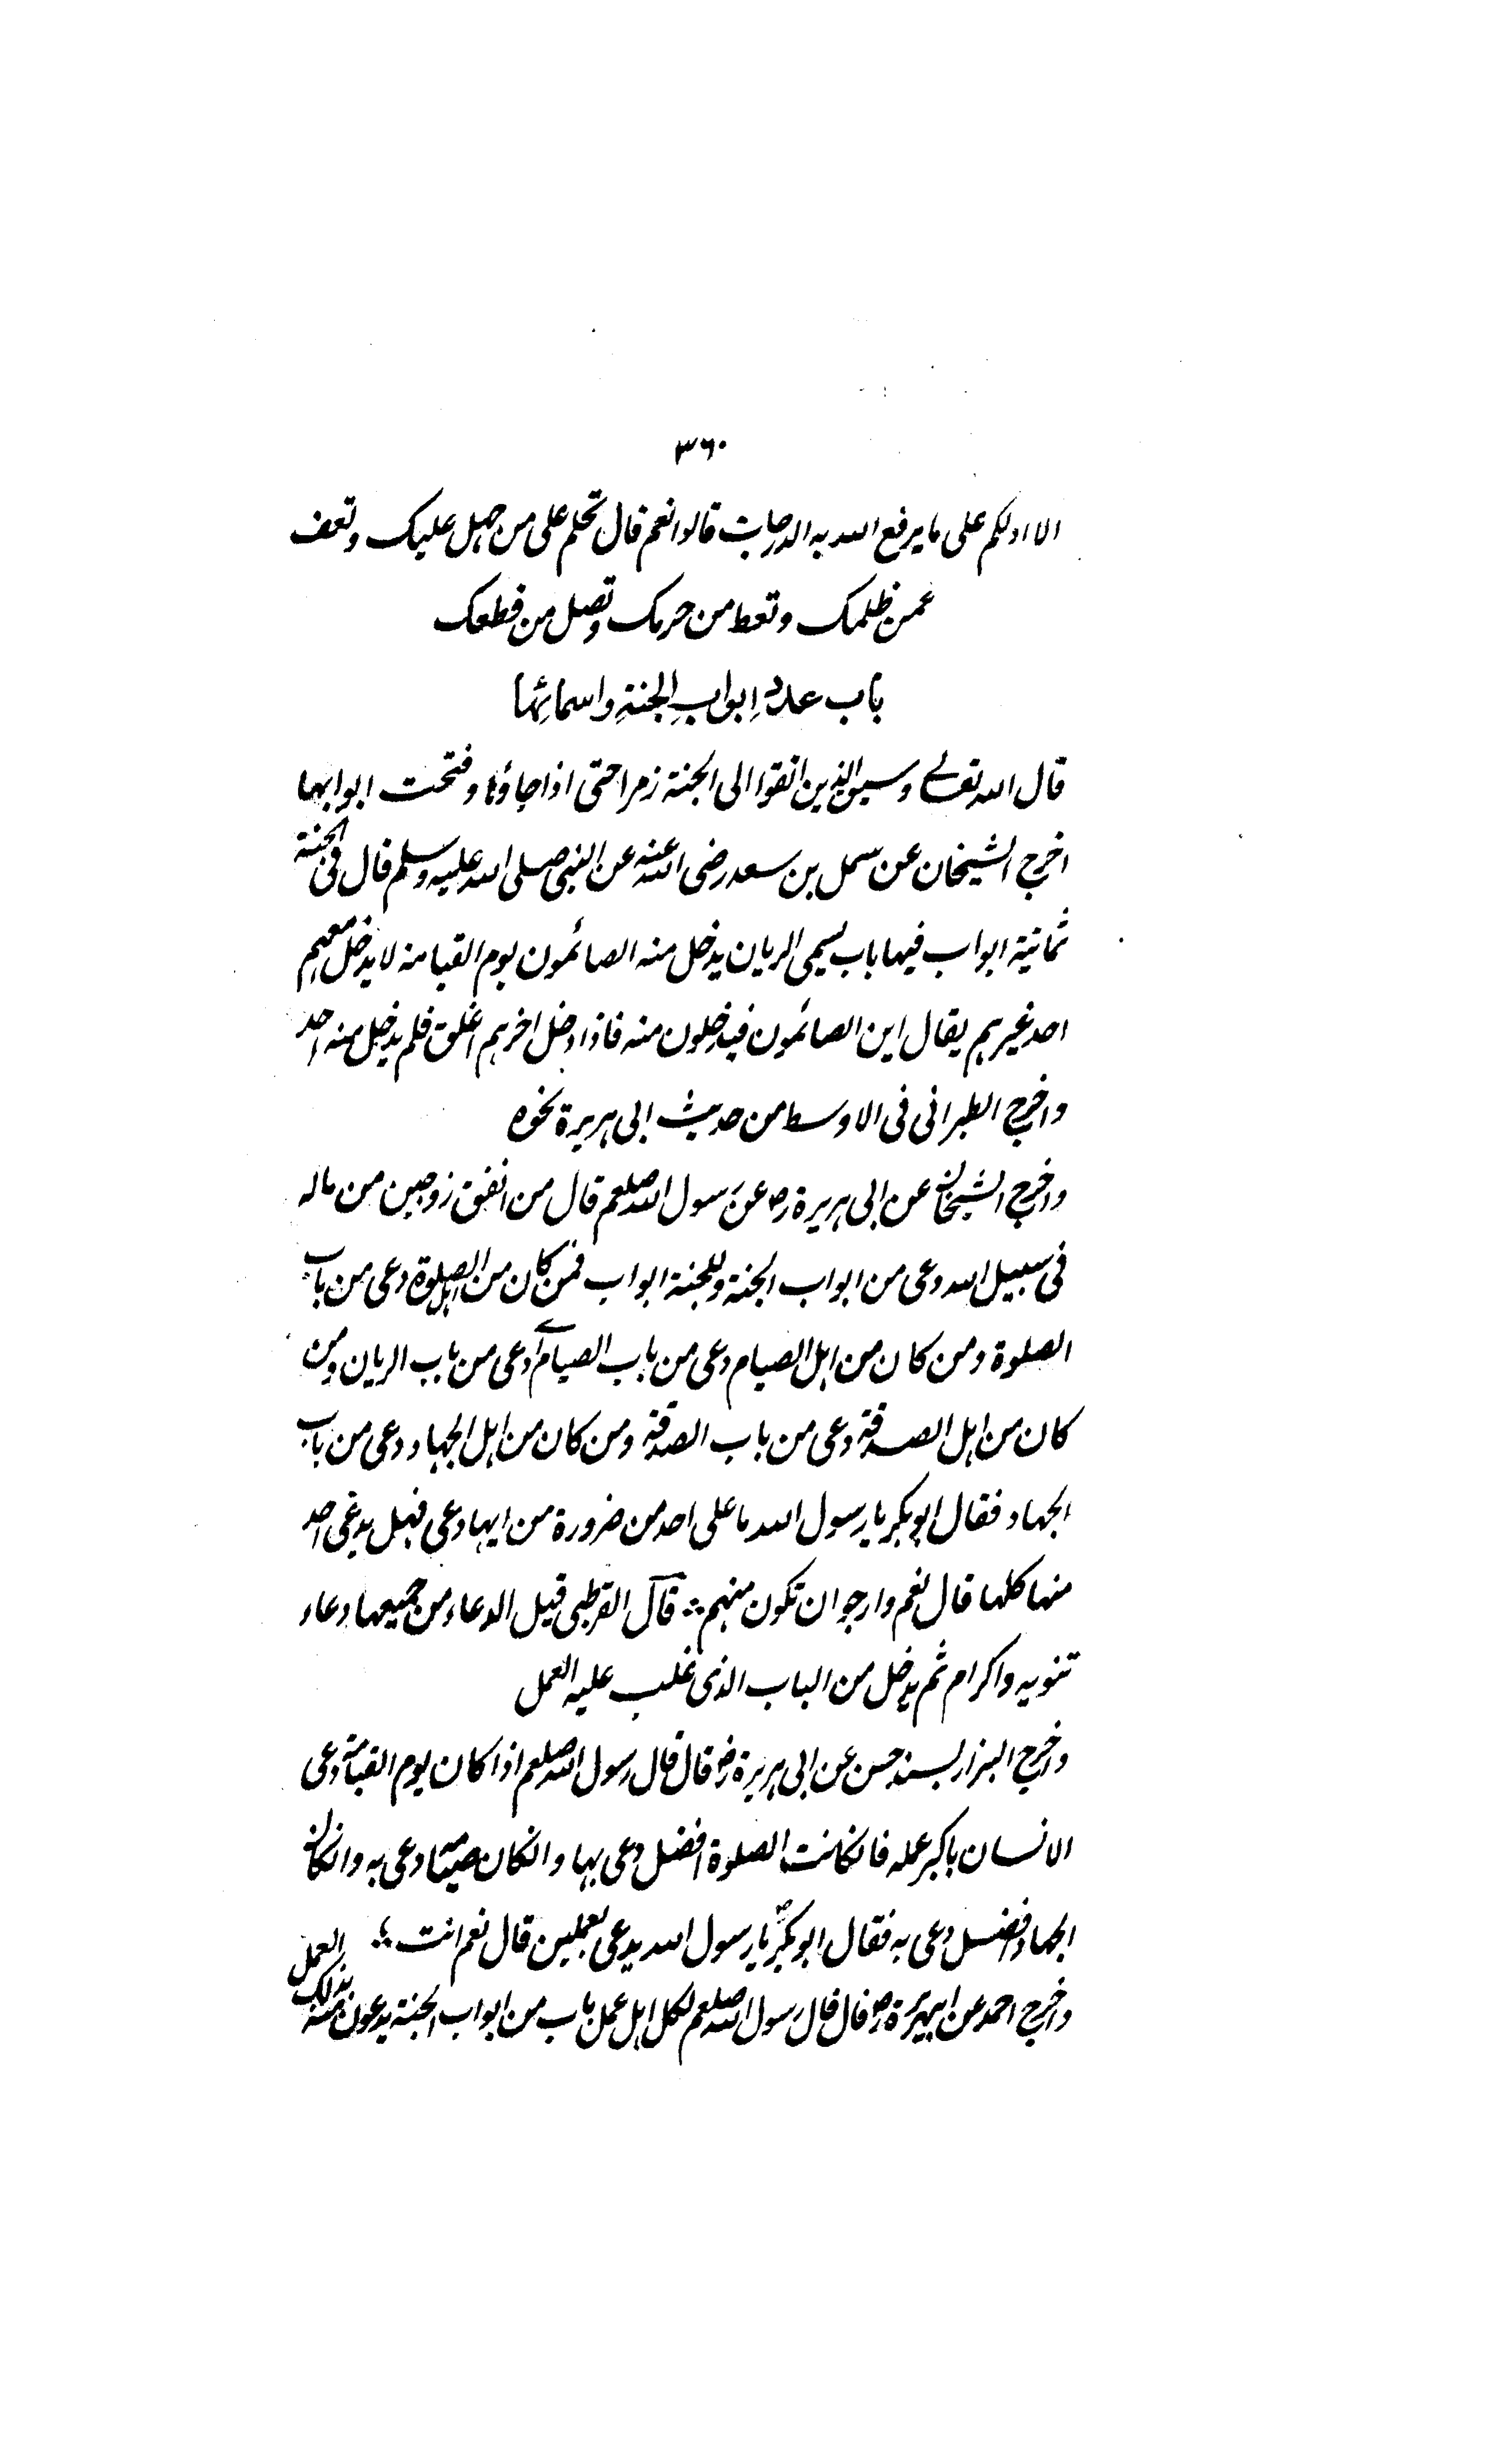 ٣٦٠
الا ادلكم على ما يرفع الله به الدرجات قالوا نعم قال تحلم على من جهل عليك وتعف
عمن ظلمك وتعط من حرمك وتصل من قطعك
باب عدد ابواب الجنة واسمائها
قال الله تعالے وسيق الذين اتقوا الى الجنة زمرا حتى اذا جاؤها وفتحت ابوابها
اخرج الشيخان عن سهل بن سعد رضى الله عنه عن النبى صلى الله عليه وسلم قال فى الجنة
ثمانية ابواب فيها باب يسمى الريان يدخل منه الصائمون يوم القيامة لا يدخل معهم
احد غيرهم يقال اين الصائمون فيدخلون منه فاذا دخل اخرهم اغلق فلم يدخل منه احد
واخرج الطبرانى فى الاوسط من حديث ابى هريرة نحوه
واخرج الشيخان عن ابى هريرة رض عن رسول الله صلعم قال من انفق زوجين من ماله
فى سبيل الله دعى من ابواب الجنة وللجنة ابواب فمن كان من اهل الصلوة دعى من باب
الصلوة ومن كان من اهل الصيام دعى من باب الصيام اے دعى من باب الريان ومن
كان من اهل الصدقة دعى من باب الصدقة ومن كان من اهل الجهاد دعى من باب
الجهاد فقال ابوبكر يا رسول الله ما على احد من ضرورة من ايها دعى فهل يدعى احد
منها كلها قال نعم وارجو ان تكون منهم ؞ قال القرطبى قيل الدعاء من جميعها دعاء
تنويه واكرام ثم يدخل من الباب الذى غلب عليه العمل
واخرج البزار بسند حسن عن ابى هريرة رض قال قال رسول الله صلعم اذا كان يوم القيامة دعى
الانسان باكبر عمله فانكانت الصلوة افضل دعى بها وانكان صيامه دعى به وانكان
الجهاد افضل دعى به فقال ابوبكر رض يا رسول الله يدعى بعملين قال نعم انت ؞
واخرج احمد عن ابيهريرة رض قال قال رسول الله صلعم لكل اهل عمل باب من ابواب الجنة يدعون منه بذلك العمل